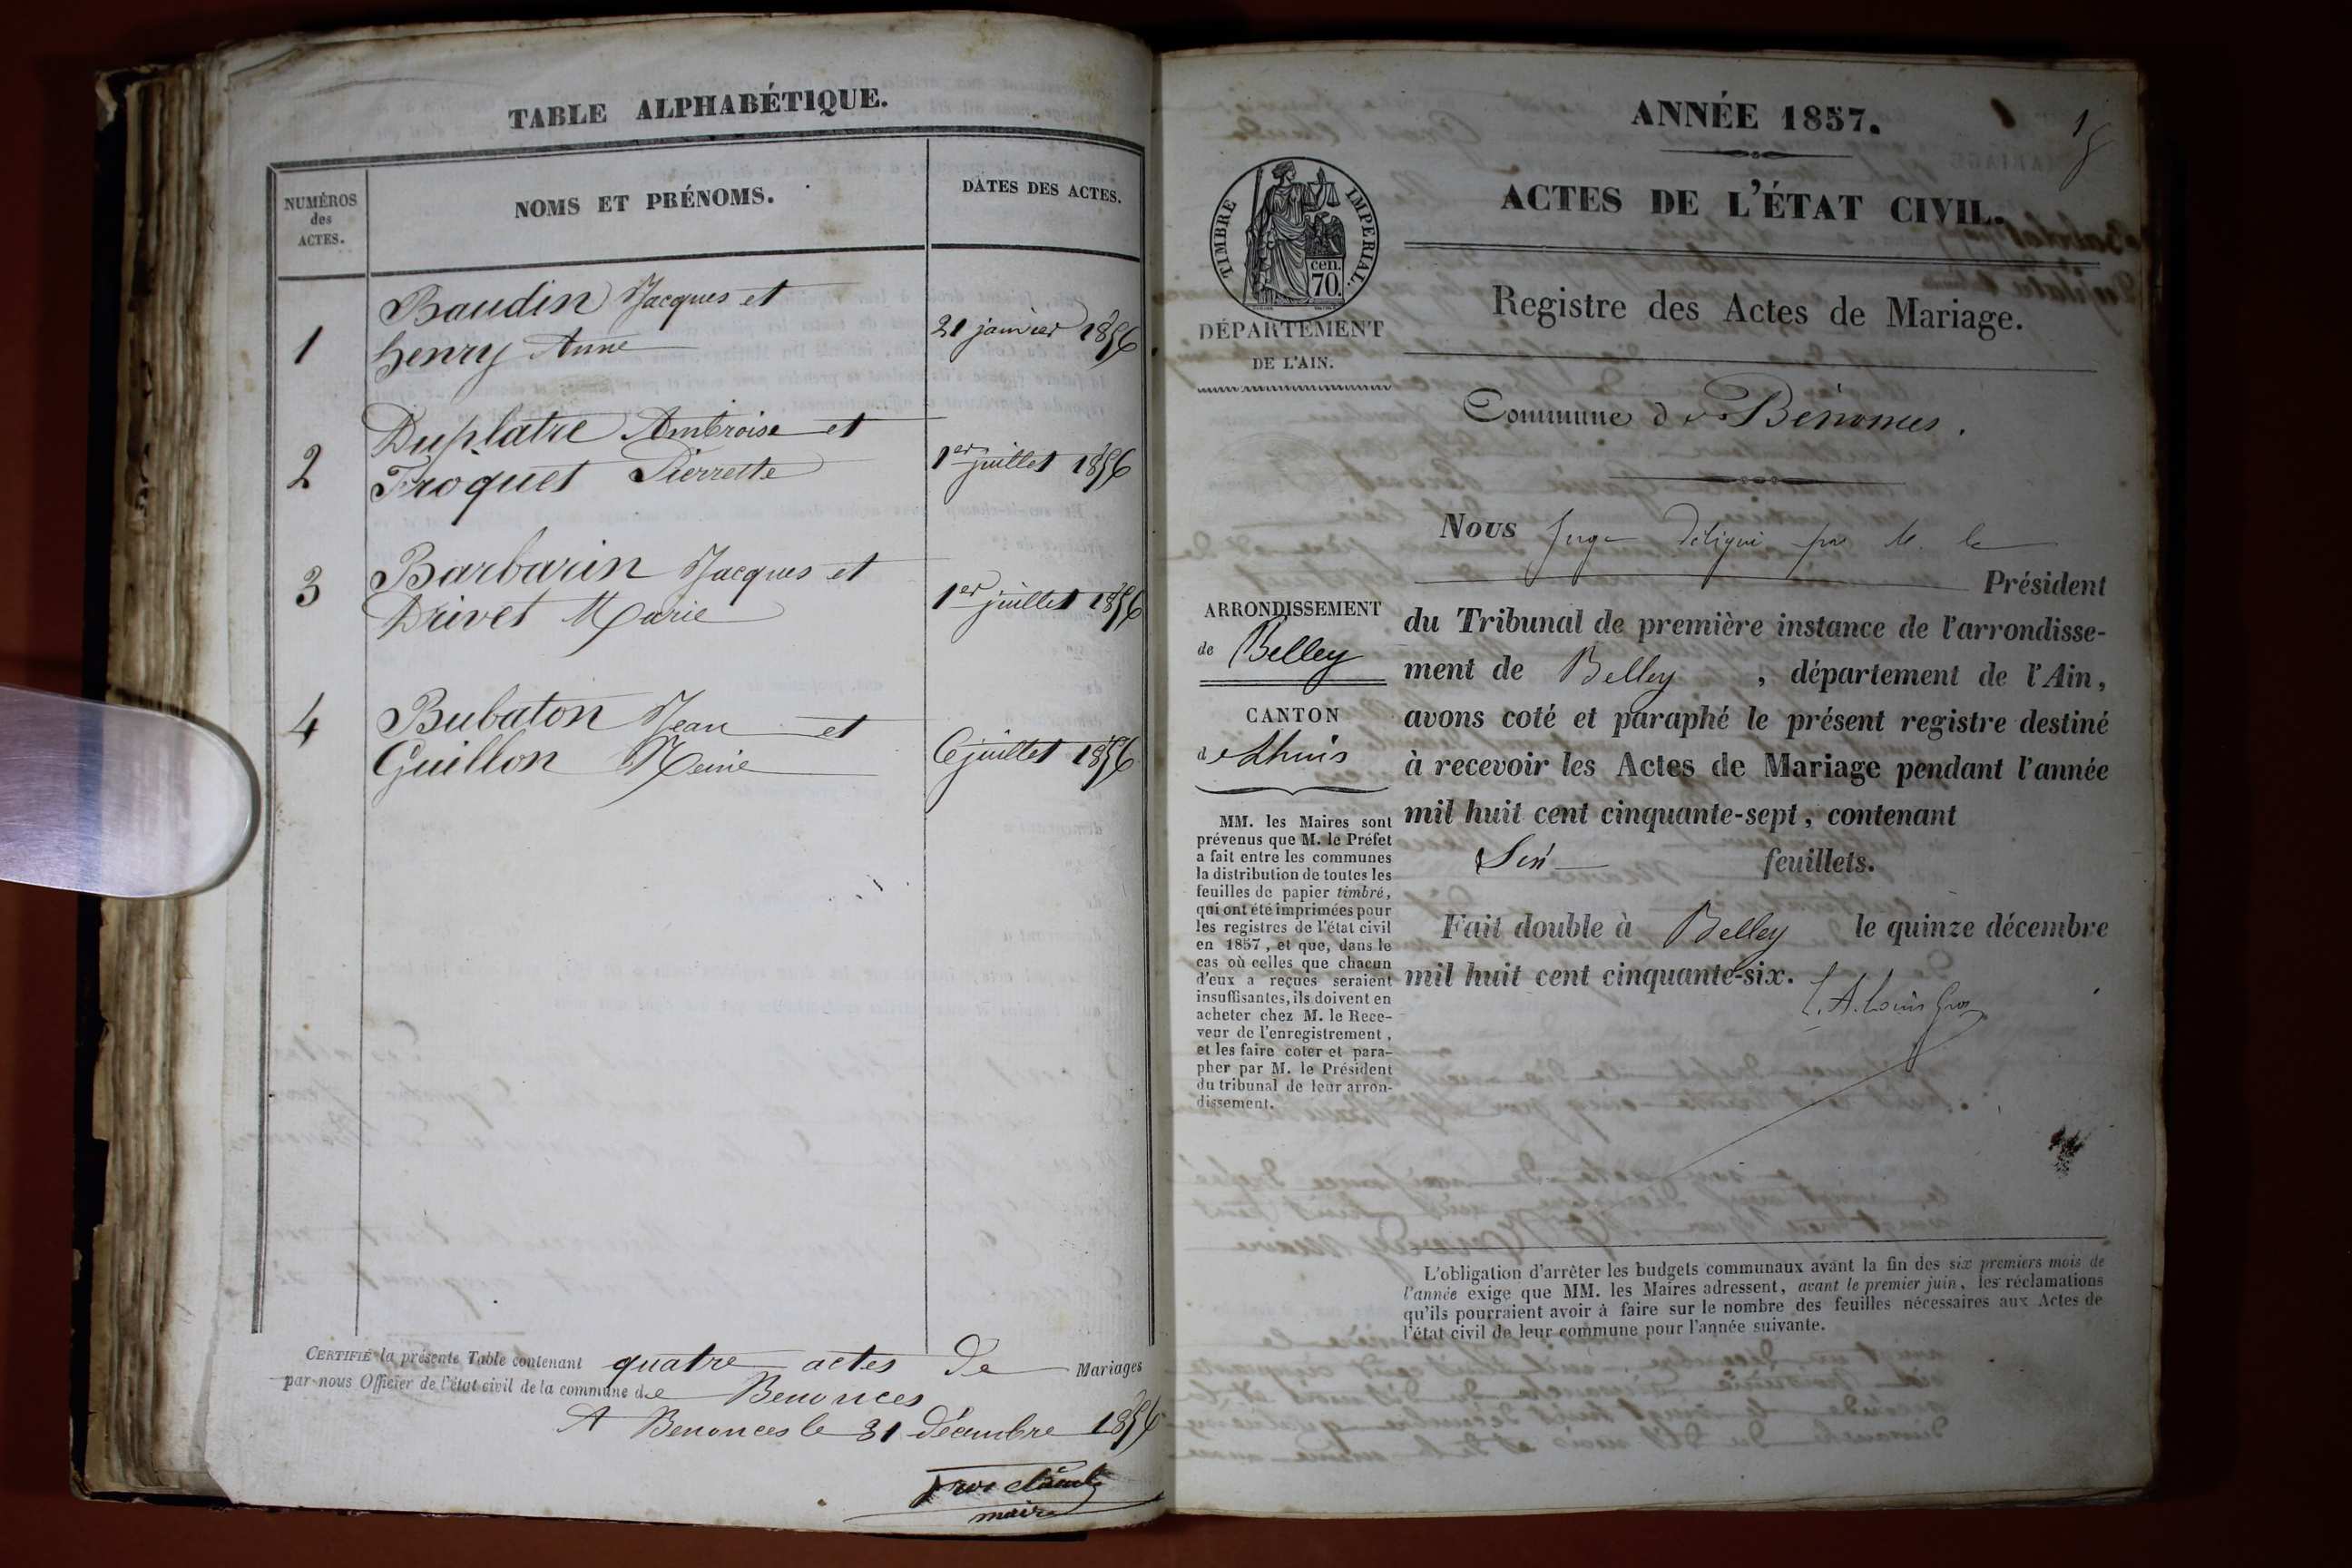 TABLE ALPHABÉTIQUE.
NUMÉROS
des
ACTES.
NOMS ET PRÉNOMS.
DATES DES ACTES.
1
Baudin Jacques et
henry Anne
21 janvier 1856
2
Duplatre Ambroise et
Troquet Pierrette
1er juillet 1856
3
Barbarin Jacques et
Drivet Marie
1er juillet 1856
4
Bubaton Jean et
Guillon Reine
6 juillet 1856
CERTIFIÉ la présente Table contenant quatre actes de Mariages
par nous Officier de l'état civil de la commune de Benonces
A Benonces le 31 décembre 1856
maire
ANNÉE 1857.
ACTES DE L'ÉTAT CIVIL.
TIMBRE IMPERIAL.
cen.
70.
DÉPARTEMENT
DE L'AIN.
Registre des Actes de Mariage.
Commune de Bénonces.
Nous Juge délégué par M. le
Président
du Tribunal de première instance de l'arrondisse-
ment de Belley, département de l'Ain,
avons coté et paraphé le présent registre destiné
à recevoir les Actes de Mariage pendant l'année
mil huit cent cinquante-sept, contenant
Six feuillets.
Fait double à Belley le quinze décembre
mil huit cent cinquante-six.
ARRONDISSEMENT
de Belley
CANTON
de Lhuis
MM. les Maires sont
prévenus que M. le Préfet
a fait entre les communes
la distribution de toutes les
feuilles de papier timbré,
qui ont été imprimées pour
les registres de l'état civil
en 1857, et que, dans le
cas où celles que chacun
d'eux a reçues seraient
insuffisantes, ils doivent en
acheter chez M. le Rece-
veur de l'enregistrement,
et les faire coter et para-
pher par M. le Président
du tribunal de leur arron-
dissement.
L'obligation d'arrêter les budgets communaux avant la fin des six premiers mois de
l'année exige que MM. les Maires adressent, avant le premier juin, les réclamations
qu'ils pourraient avoir à faire sur le nombre des feuilles nécessaires aux Actes de
l'état civil de leur commune pour l'année suivante.